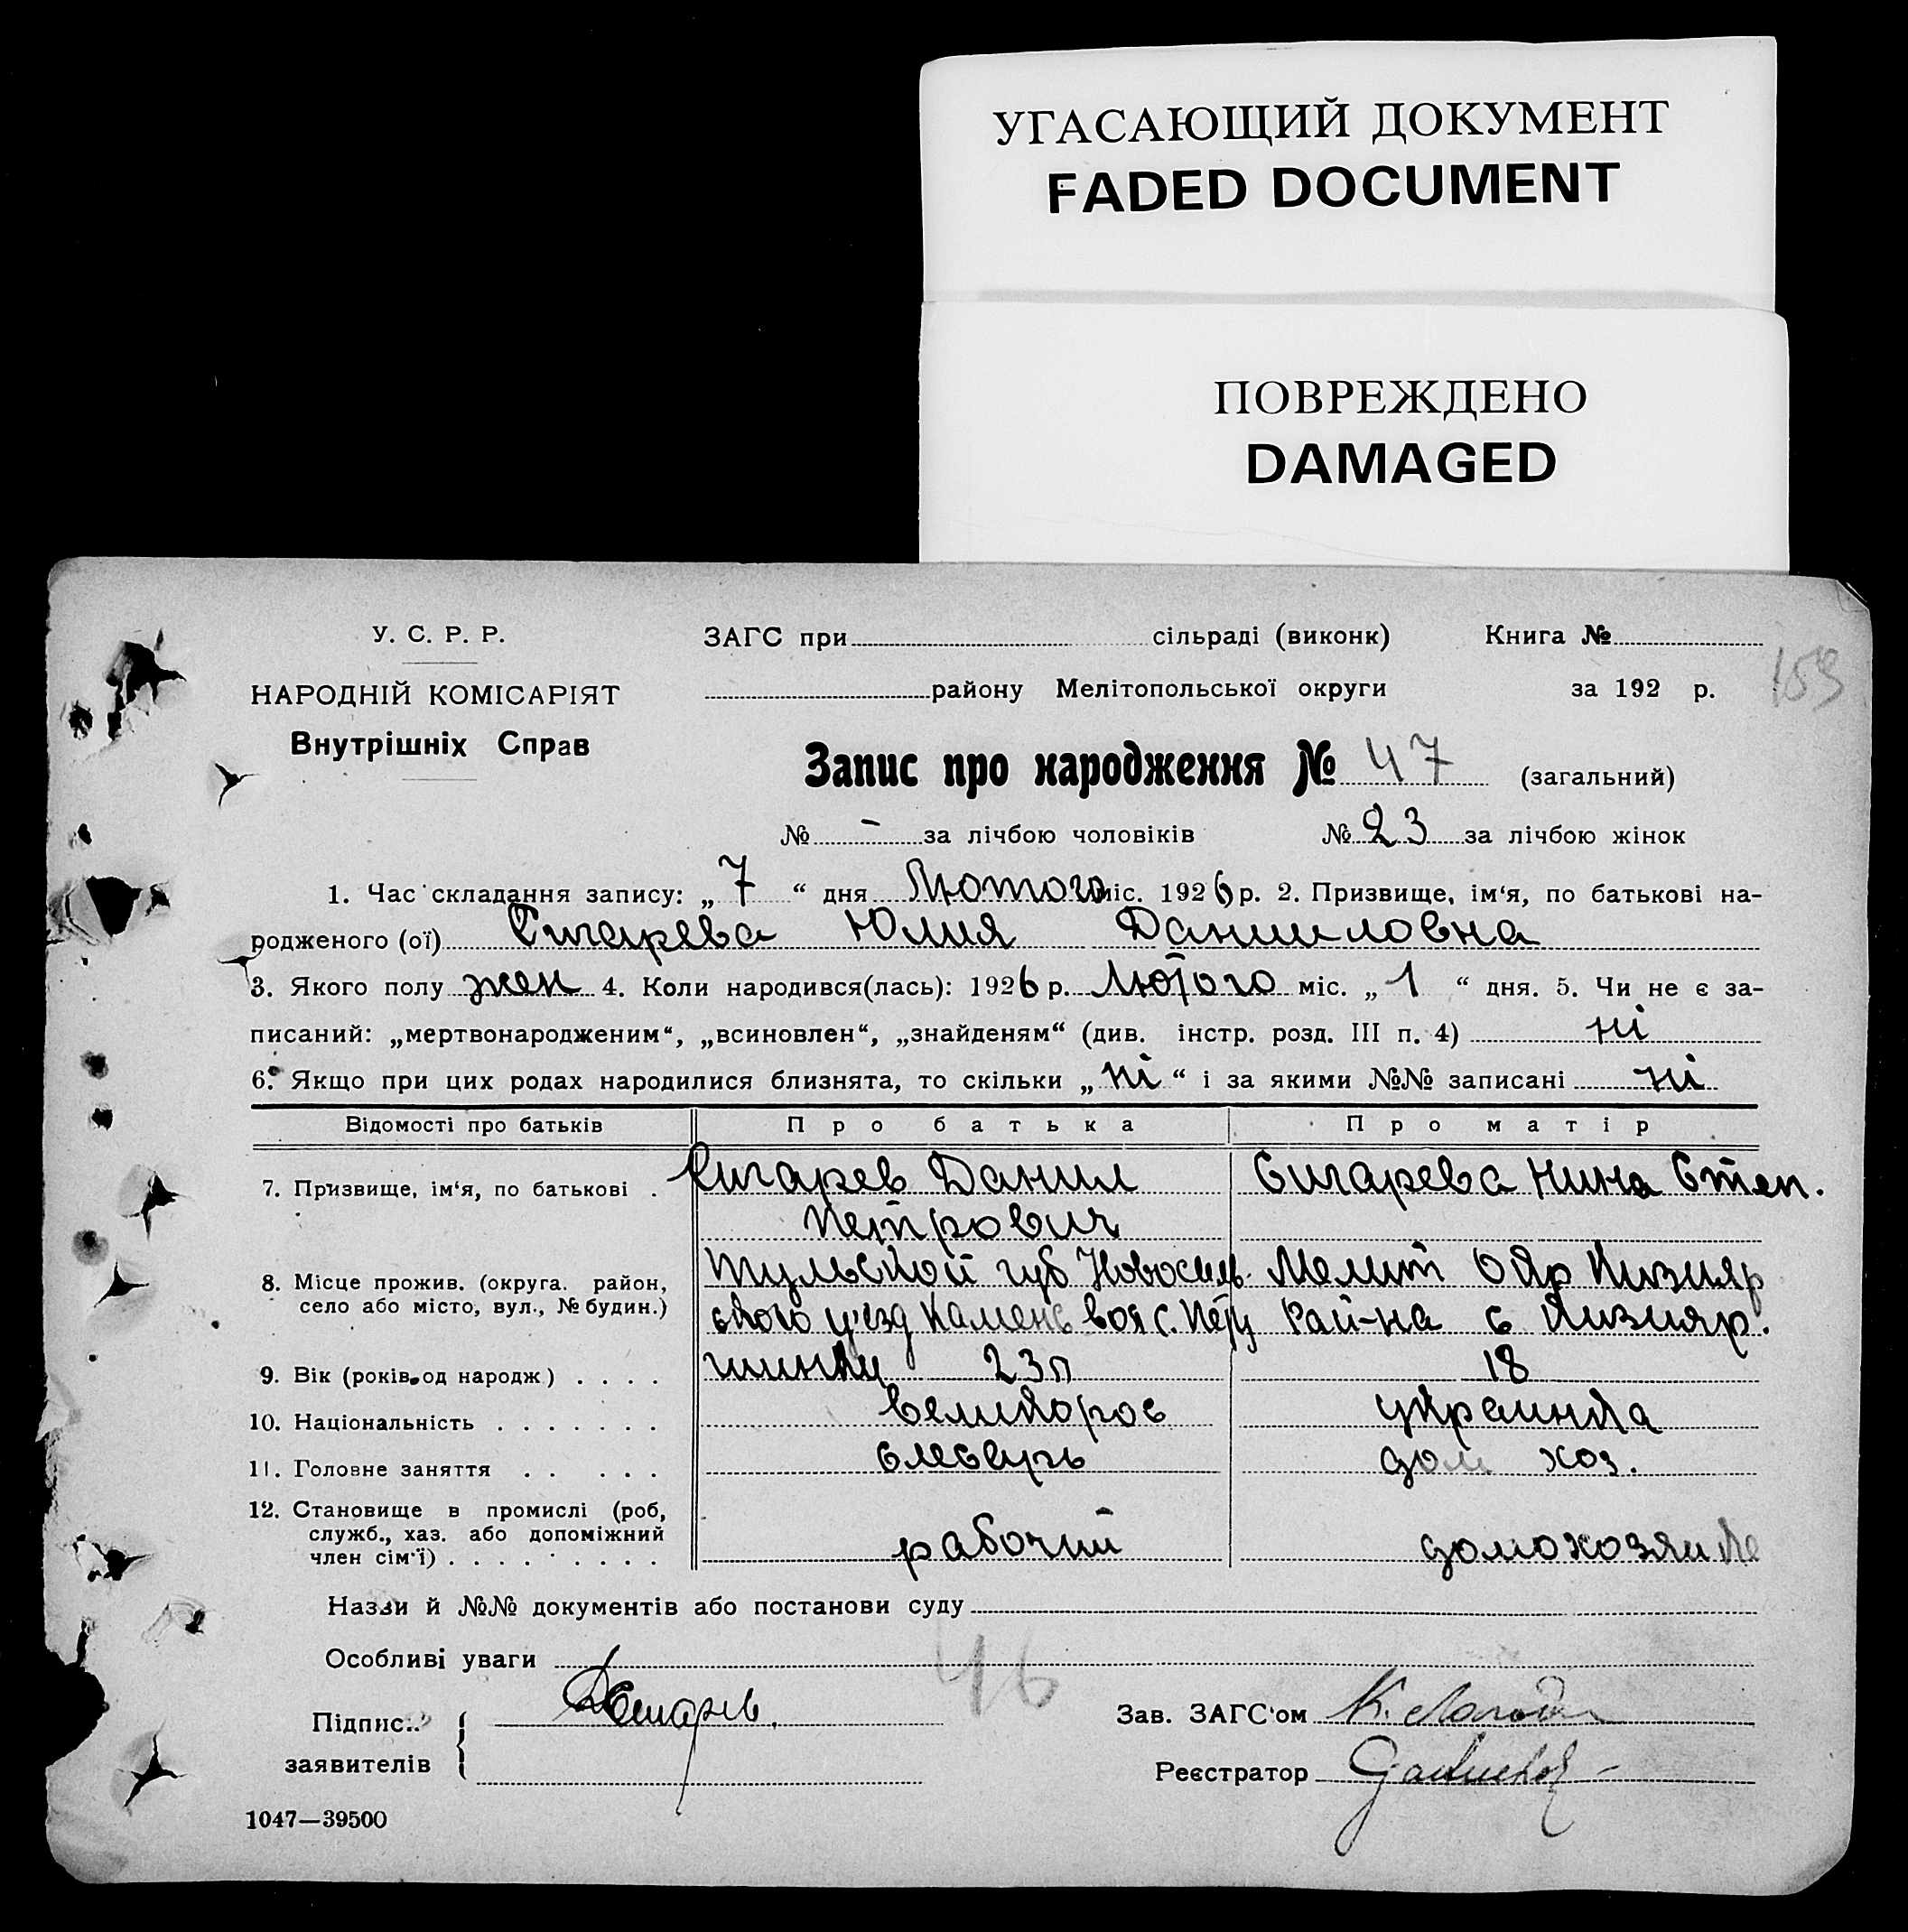 УГАСАЮЩИЙ ДОКУМЕНТ
FADED DOCUMENT
ПОВРЕЖДЕНО
DAMAGED
У. С. Р. Р.
НАРОДНІЙ КОМІСАРІЯТ
Внутрішніх Справ
ЗАГС при сільраді (виконк) Книга №
159
району Мелітопольської округи за 192 р.
Запис про народження № 47 (загальний)
№ – за лічбою чоловіків № 23 за лічбою жінок
1. Час складання запису: „ 7 “ дня Лютого міс. 1926 р. 2. Призвище, ім‘я, по батькові на-
родженого (ої) Сигарева Юлия Даниловна
3. Якого полу жен 4. Коли народився(лась): 1926 р. Лютого міс. „ 1 “ дня. 5. Чи не є за-
писаний: „мертвонародженим“, „всиновлен“, „знайденям“ (див. інстр. розд. III п. 4) ні
6. Якщо при цих родах народилися близнята, то скільки „ ні “ і за якими №№ записані ні
Відомості про батьків Про батька Про матір
7. Призвище, ім‘я, по батькові . Сигарев Данил Сигарева Нина Степ.
Петрович
8. Місце прожив. (округа. район, село або місто, вул., № будин.) Тульской губ Новосиль- Мелит Окр Кизияр
ского уезд Каменс вол с. Рай-на с Кизияр.
9. Вік (років од народж) . . . . 23 л 18
10. Національність . . . . . . . великорос украинка
11. Головне заняття . . . . . слесарь дом хоз.
12. Становище в промислі (роб,
служб., хаз. або допоміжний
член сім‘ї) . . . . . . . . . рабочий домохозяйка
Назви й №№ документів або постанови суду
Особливі уваги
46
Підпис..
заявителів
Зав. ЗАГС‘ом
Реєстратор
1047—39500